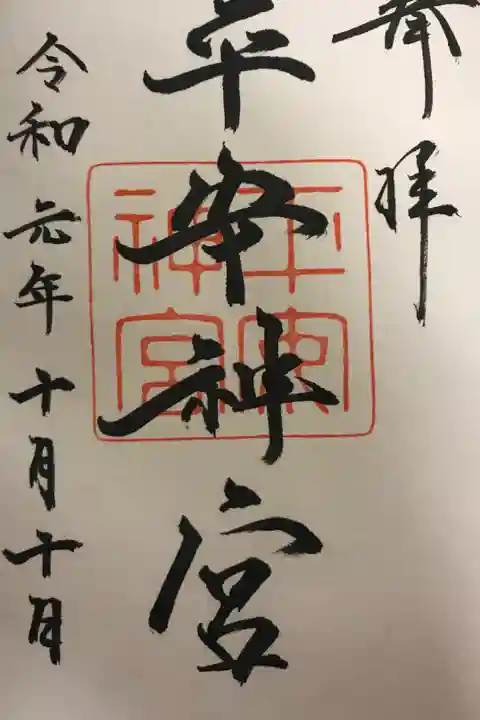 奉拝
平安神宮
平安神宮
令和元年十月十月